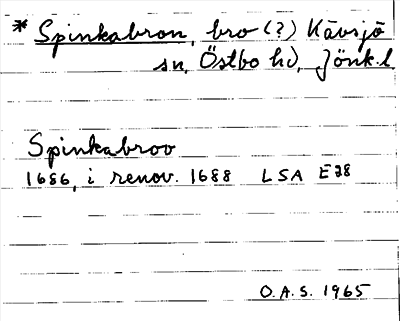 * Spinkabron, bro (?) Kävsjö
sn, Östbo hd, Jönk. l
Spinkabroo
1686, i renov. 1688 LSA E28
O.A.S. 1965